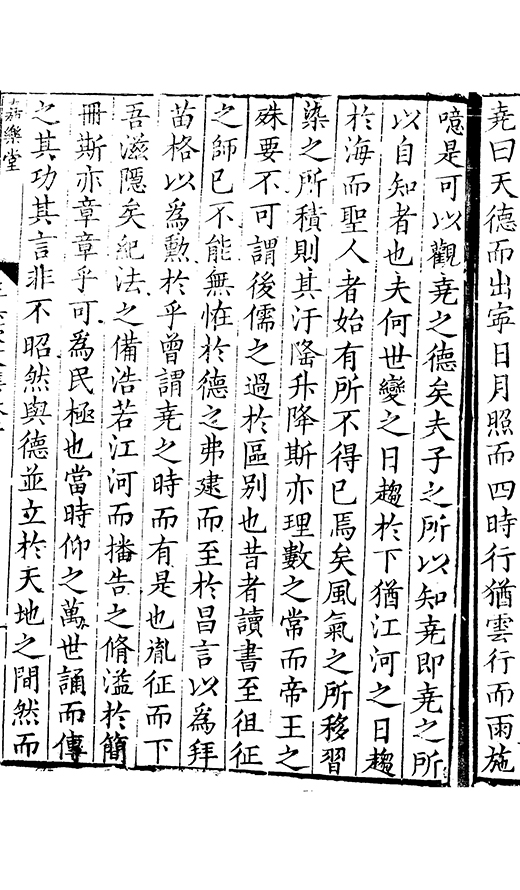 堯曰天德而出寕日月照而四時行猶雲行而雨施
噫是可以觀堯之德矣夫子之所以知堯即堯之所
以自知者也夫何世變之日趨於下猶江河之日趨
於海而聖人者始有所不得已焉矣風氣之所移習
染之所積則其汙隆升降斯亦理數之常而帝王之
殊要不可謂後儒之過於區別也昔者讀書至徂征
之師已不能無恠於德之弗建而至於昌言以為拜
苗格以為勲於乎曾謂堯之時而有是也胤征而下
吾滋隱矣紀法之備浩若江河而播告之脩溢於簡
冊斯亦章章乎可為民極也當時仰之萬世誦而傳
之其功其言非不昭然與德並立於天地之間然而
樂堂